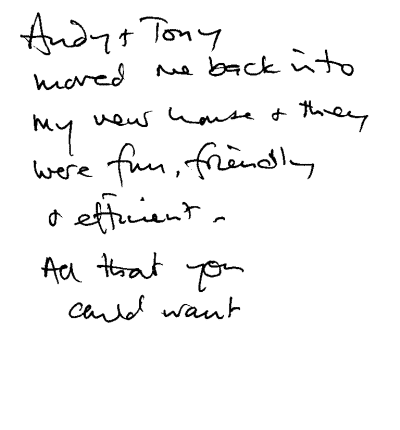 Andy & Tony
moved me back into
my new house & they
were fun, friendly
& efficient.
All that you
could want